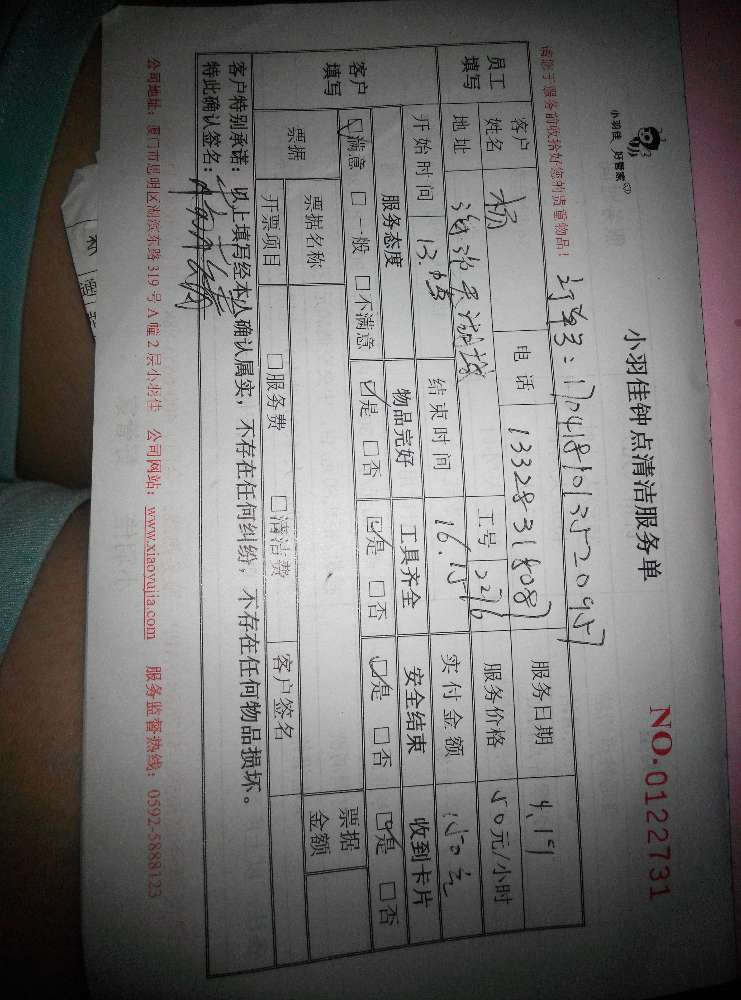 小羽佳 好管家
小羽佳钟点清洁服务单
NO.0122731
请您于服务前收拾好您的贵重物品！
订单号：1704181013520957
员工填写 客户姓名 杨 电话 13328318087 服务日期 4.19
地址 工号 2276 服务价格 50元/小时
开始时间 13. 结束时间 16.15 实付金额 150元
客户填写 服务态度 物品完好 工具齐全 安全结束 收到卡片
☑满意 □一般 □不满意 ☑是 □否 ☑是 □否 ☑是 □否 ☑是 □否
票据 票据名称 票据金额
开票项目 □服务费 □清洁费 客户签名
客户特别承诺：以上填写经本人确认属实，不存在任何纠纷，不存在任何物品损坏。
特此确认签名：
公司地址：厦门市思明区湖滨东路319号A幢2层小羽佳 公司网站：www.xiaoyujia.com 服务监督热线：0592-5888123